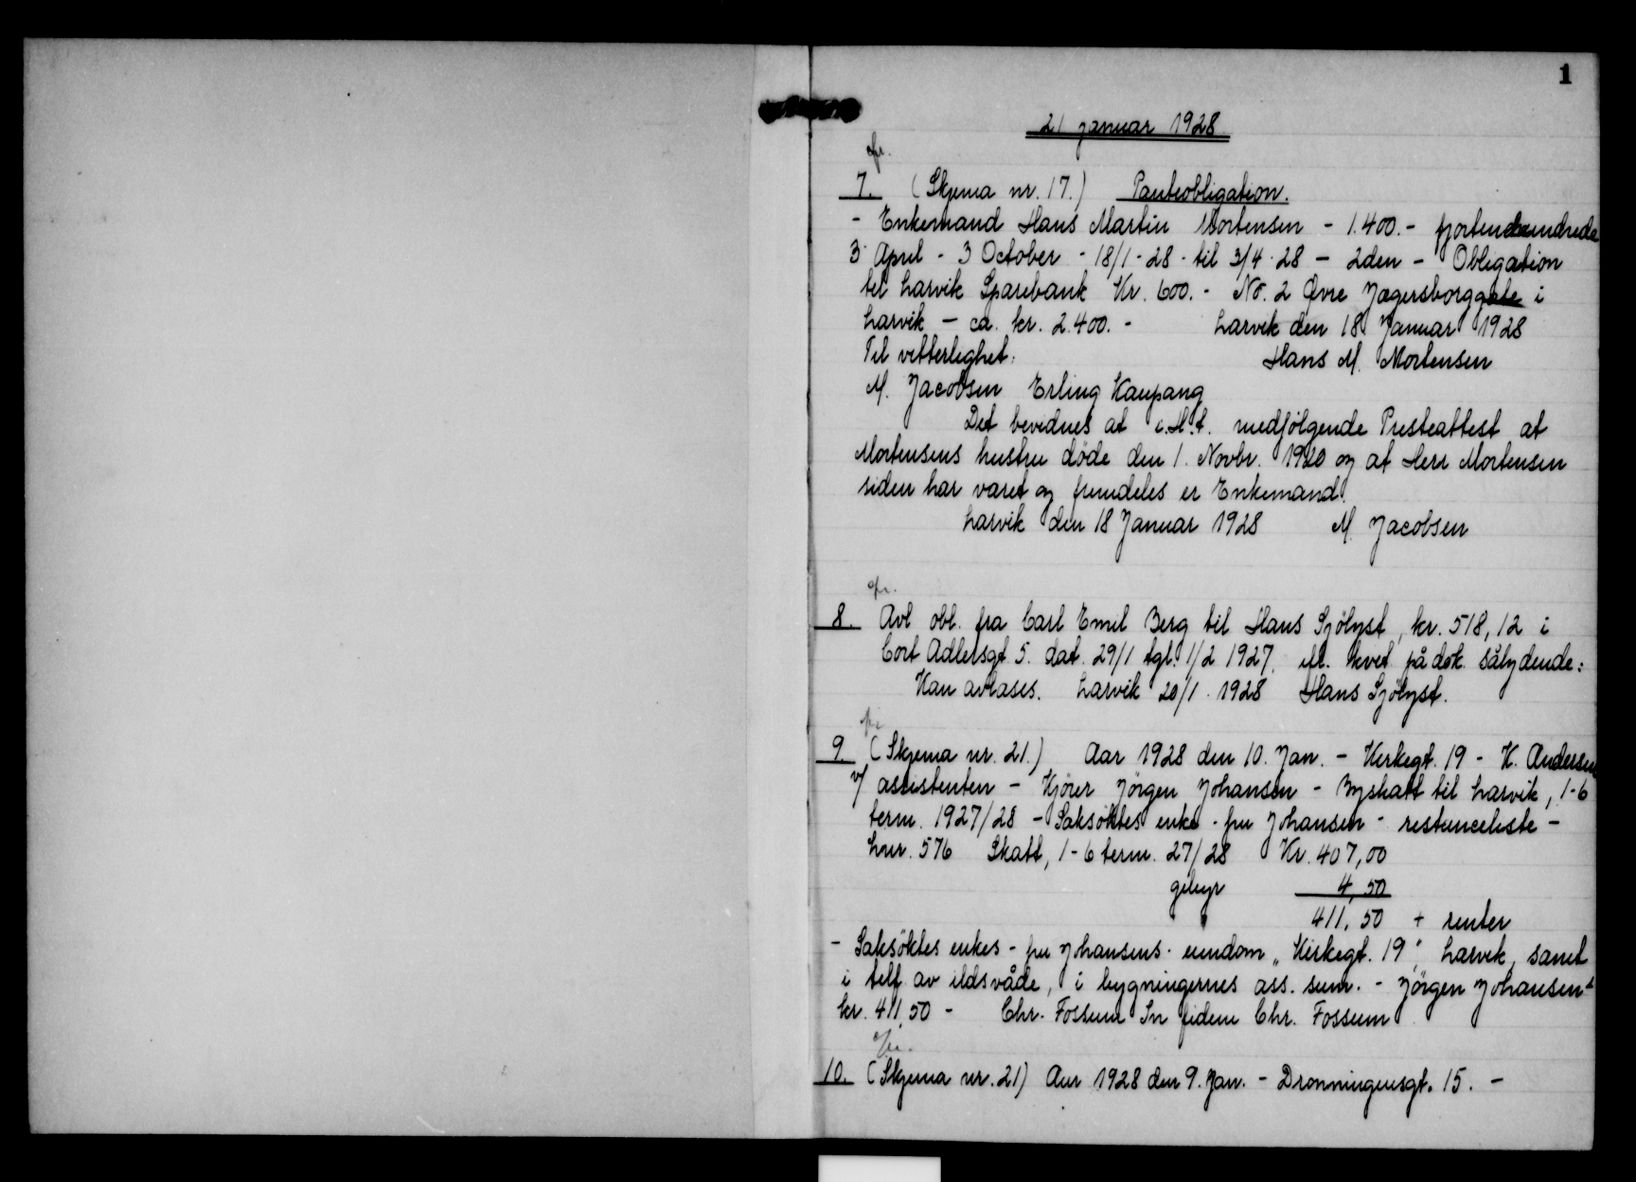 1
21 januar 1928
7. (Skjema nr. 17.) Panteobligation.
- Enkemand Hans Martin Mortensen - 1.400.- fjortenhundrede
3 April - 3 October - 18/1-28 - til 3/4-28 - 2den - Obligation
til Larvik Sparebank Kr. 600.- No. 2 Øvre Jægersborggate i
Larvik - ca. kr. 2.400.- Larvik den 18 Januar 1928
Til vitterlighet: Hans M. Mortensen
M. Jacobsen Erling Kaupang
Det bevidnes at i.H.t. medfølgende Presteattest at
Mortensens hustru døde den 1. Novbr. 1920 og at Herr Mortensen
siden har været og fremdeles er Enkemand.
Larvik den 18 Januar 1928 M. Jacobsen
8. Avl obl. fra Carl Emil Berg til Hans Sjölyst, kr. 518,12 i
Cort Adlersgt 5. dat. 29/1 tgl. 1/2 1927. kvet på dok. sålydende:
Kan avlases. Larvik 20/1. 1928 Hans Sjölyst.
9. (Skjema nr. 21.) Aar 1928 den 10. Jan. - Kirkegt. 19 - K. Andersen
v/ assistenten - Kjører Jörgen Johansen - Byskatt til Larvik, 1-6
term. 1927/28 - Saksöktes enke - fru Johansen - restanceliste -
Lnr. 576 Skatt, 1-6 term. 27/28 Kr. 407,00
gebyr 4,50
411,50 + renter
- Saksöktes enkes - fru Johansens - eiendom „Kirkegt. 19", Larvik, samt
i telf. av ildsvåde, i bygningernes ass. sum. - Jörgen Johansen
kr. 411,50 - Chr. Fossum In fidem Chr. Fossum
10. (Skjema nr. 21) Aar 1928 den 9. Jan. - Dronningensgt. 15. -